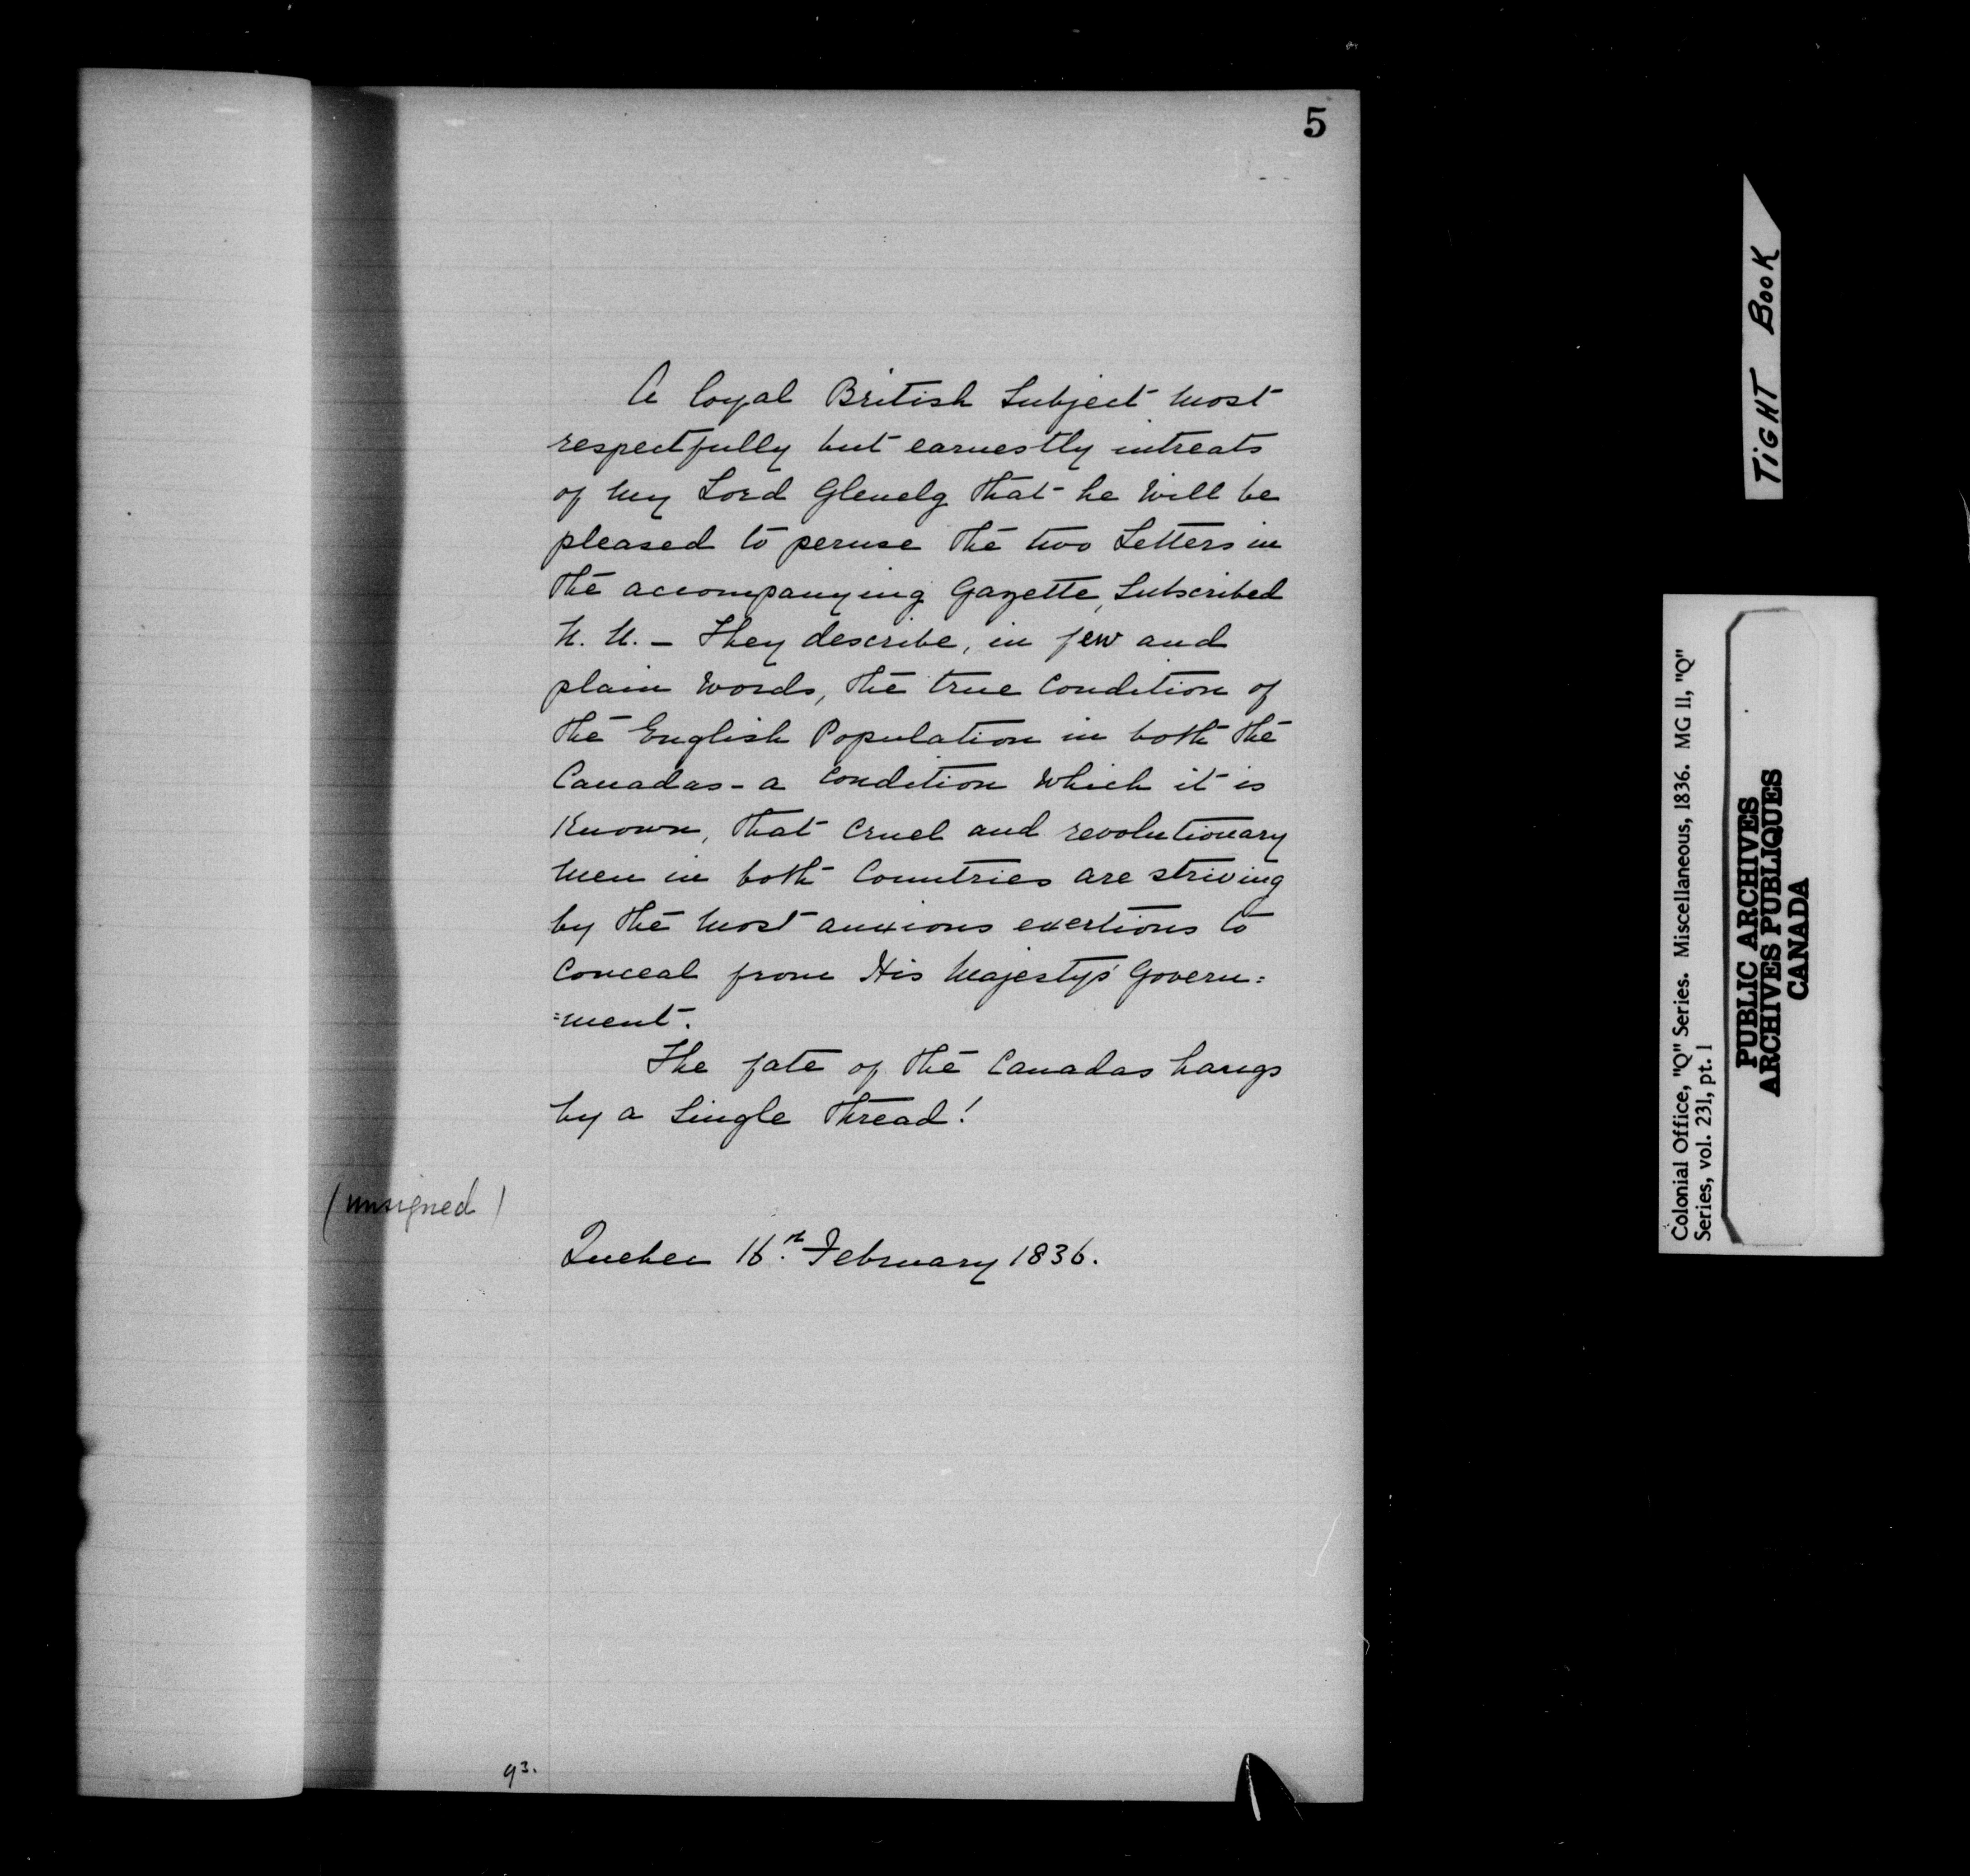 5
A loyal British Subject most
respectfully but earnestly intreats
of my Lord Glenelg that he will be
pleased to peruse the two Letters in
the accompanying Gazette, Subscribed
They describe, in few and
plain words, the true Condition of
the English Population in both the
Canadas - a Condition which it is
Known, that Cruel and revolutionary
men in both Countries are striving
by the most anxious exertions to
Conceal from His Majesty's Govern:
:ment.
The fate of the Canadas hangs
by a Single thread!
(unsigned)
Quebec 16.th February 1836.
93.
TIGHT BOOK
Colonial Office, "Q" Series. Miscellaneous, 1836. MG 11, "Q"
Series, vol. 231, pt. 1
PUBLIC ARCHIVES
ARCHIVES PUBLIQUES
CANADA